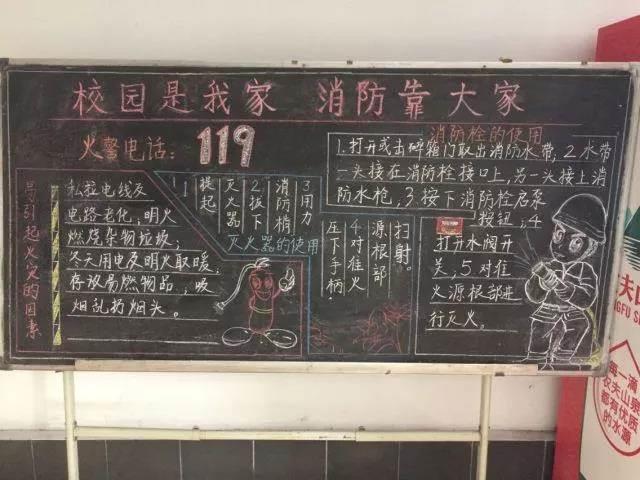 校园是我家 消防靠大家
火警电话：119
导引起火灾的因素
私拉电线及
电路老化；明火
燃烧杂物垃圾；
冬天用电及明火取暖，
存放易燃物品；吸
烟乱扔烟头。
灭火器的使用
1提起
灭火器
2拔下
消防梢
3用力
压下手柄；
4对准火
源根部
扫射。
消防栓的使用
1.打开或击碎箱门取出消防水带，2水带
一头接在消防栓接口上，另一头接上消
防水枪，3按下消防栓启泵
按钮；4
打开水阀开
关，5.对准
火源根部进
行灭火。
夫山
NGFU S
每一滴
农夫山泉
都有优质
的水源